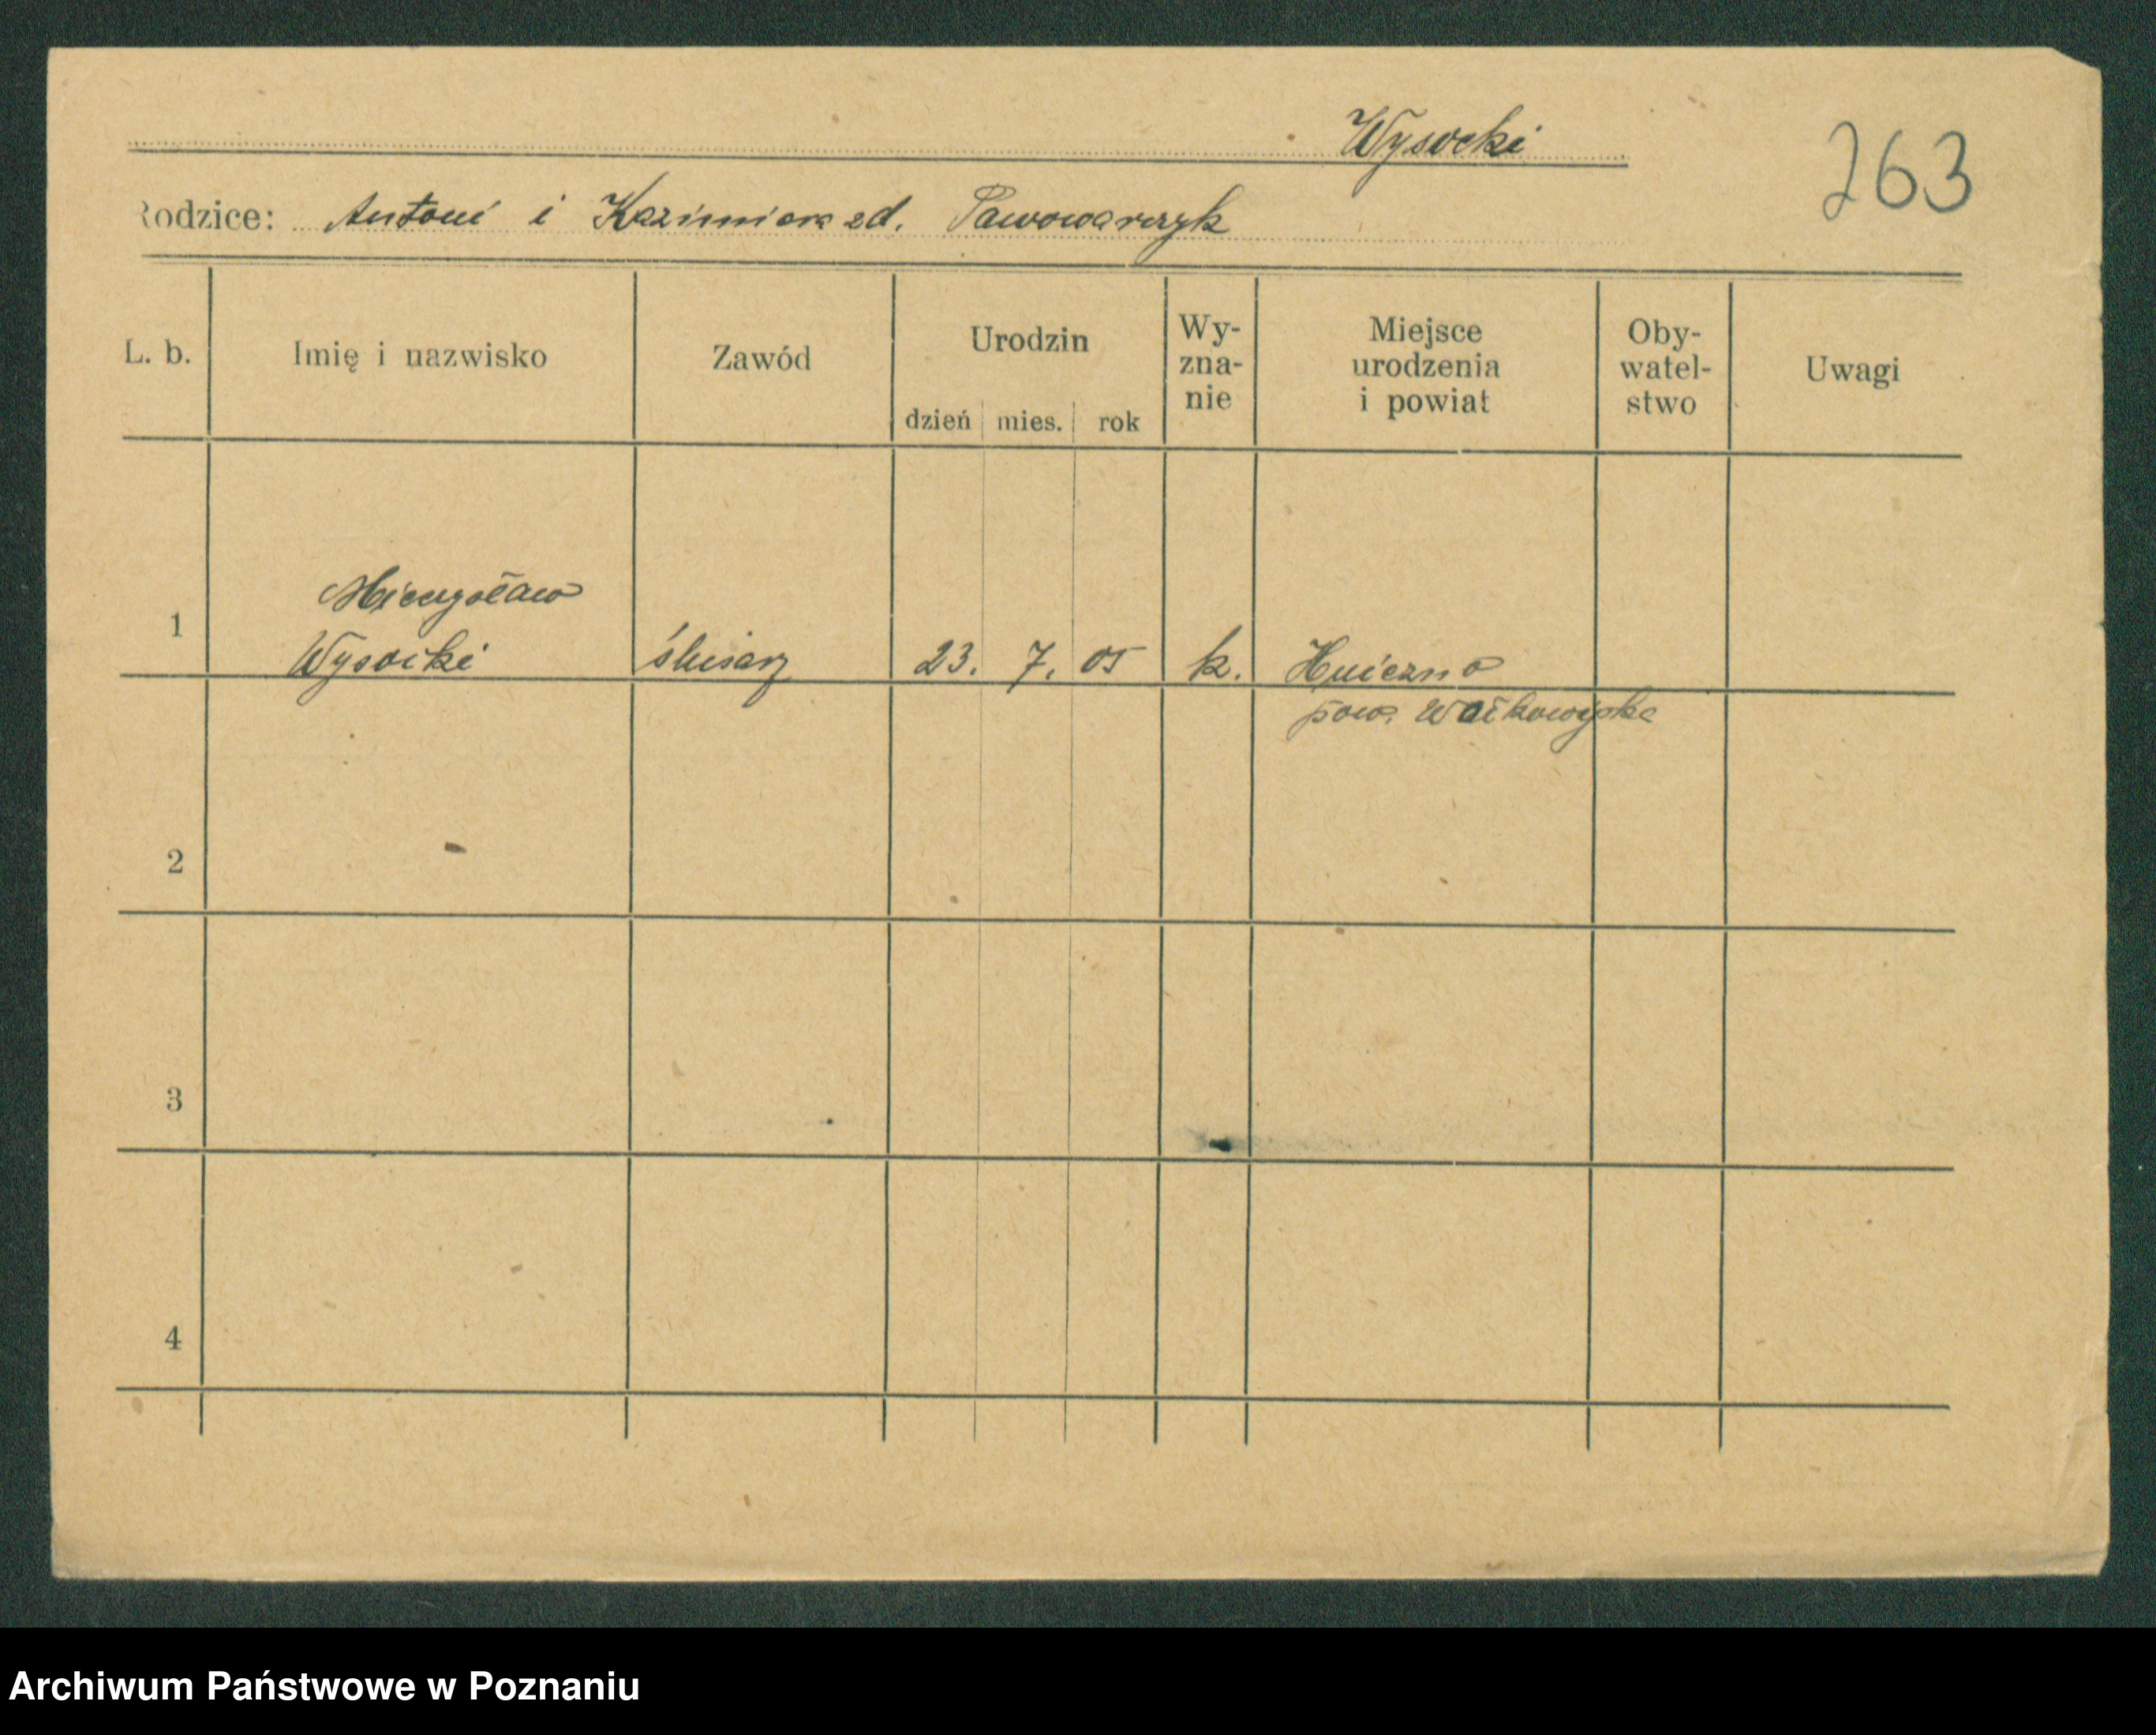 Wysocki
263
Rodzice: Antoni i Kazimiera zd. Pawowarczyk
L. b. Imię i nazwisko Zawód Urodzin dzień mies. rok Wy-zna-nie Miejsce urodzenia i powiat Oby-watel-stwo Uwagi
Mieczysław
1 Wysocki ślusarz 23. 7. 05 k. Hniezno
pow. Wołkowyska
2
3
4
Archiwum Państwowe w Poznaniu